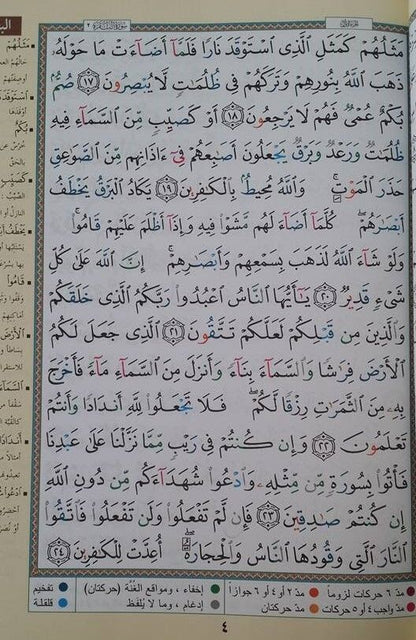 سورة البقرة
مَثَلُهُمْ كَمَثَلِ ٱلَّذِى ٱسْتَوْقَدَ نَارًا فَلَمَّآ أَضَآءَتْ مَا حَوْلَهُۥ
ذَهَبَ ٱللَّهُ بِنُورِهِمْ وَتَرَكَهُمْ فِى ظُلُمَٰتٍ لَّا يُبْصِرُونَ ١٧ صُمٌّۢ
بُكْمٌ عُمْىٌ فَهُمْ لَا يَرْجِعُونَ ١٨ أَوْ كَصَيِّبٍ مِّنَ ٱلسَّمَآءِ فِيهِ
ظُلُمَٰتٌ وَرَعْدٌ وَبَرْقٌ يَجْعَلُونَ أَصَٰبِعَهُمْ فِىٓ ءَاذَانِهِم مِّنَ ٱلصَّوَٰعِقِ
حَذَرَ ٱلْمَوْتِ ۚ وَٱللَّهُ مُحِيطٌۢ بِٱلْكَٰفِرِينَ ١٩ يَكَادُ ٱلْبَرْقُ يَخْطَفُ
أَبْصَٰرَهُمْ ۖ كُلَّمَآ أَضَآءَ لَهُم مَّشَوْا۟ فِيهِ وَإِذَآ أَظْلَمَ عَلَيْهِمْ قَامُوا۟ ۚ
وَلَوْ شَآءَ ٱللَّهُ لَذَهَبَ بِسَمْعِهِمْ وَأَبْصَٰرِهِمْ ۚ إِنَّ ٱللَّهَ عَلَىٰ كُلِّ
شَىْءٍ قَدِيرٌ ٢٠ يَٰٓأَيُّهَا ٱلنَّاسُ ٱعْبُدُوا۟ رَبَّكُمُ ٱلَّذِى خَلَقَكُمْ
وَٱلَّذِينَ مِن قَبْلِكُمْ لَعَلَّكُمْ تَتَّقُونَ ٢١ ٱلَّذِى جَعَلَ لَكُمُ
ٱلْأَرْضَ فِرَٰشًا وَٱلسَّمَآءَ بِنَآءً وَأَنزَلَ مِنَ ٱلسَّمَآءِ مَآءً فَأَخْرَجَ
بِهِۦ مِنَ ٱلثَّمَرَٰتِ رِزْقًا لَّكُمْ ۖ فَلَا تَجْعَلُوا۟ لِلَّهِ أَندَادًا وَأَنتُمْ
تَعْلَمُونَ ٢٢ وَإِن كُنتُمْ فِى رَيْبٍ مِّمَّا نَزَّلْنَا عَلَىٰ عَبْدِنَا
فَأْتُوا۟ بِسُورَةٍ مِّن مِّثْلِهِۦ وَٱدْعُوا۟ شُهَدَآءَكُم مِّن دُونِ ٱللَّهِ
إِن كُنتُمْ صَٰدِقِينَ ٢٣ فَإِن لَّمْ تَفْعَلُوا۟ وَلَن تَفْعَلُوا۟ فَٱتَّقُوا۟
ٱلنَّارَ ٱلَّتِى وَقُودُهَا ٱلنَّاسُ وَٱلْحِجَارَةُ ۖ أُعِدَّتْ لِلْكَٰفِرِينَ ٢٤
مدّ ٦ حركات لزوماً مدّ ٢ أو ٤ أو ٦ جوازاً إخفاء ، ومواقع الغُنَّة (حركتان) تفخيم
مدّ واجب ٤ أو ٥ حركات مدّ حركتان إدغام ، وما لا يُلفَظ قلقلة
٤